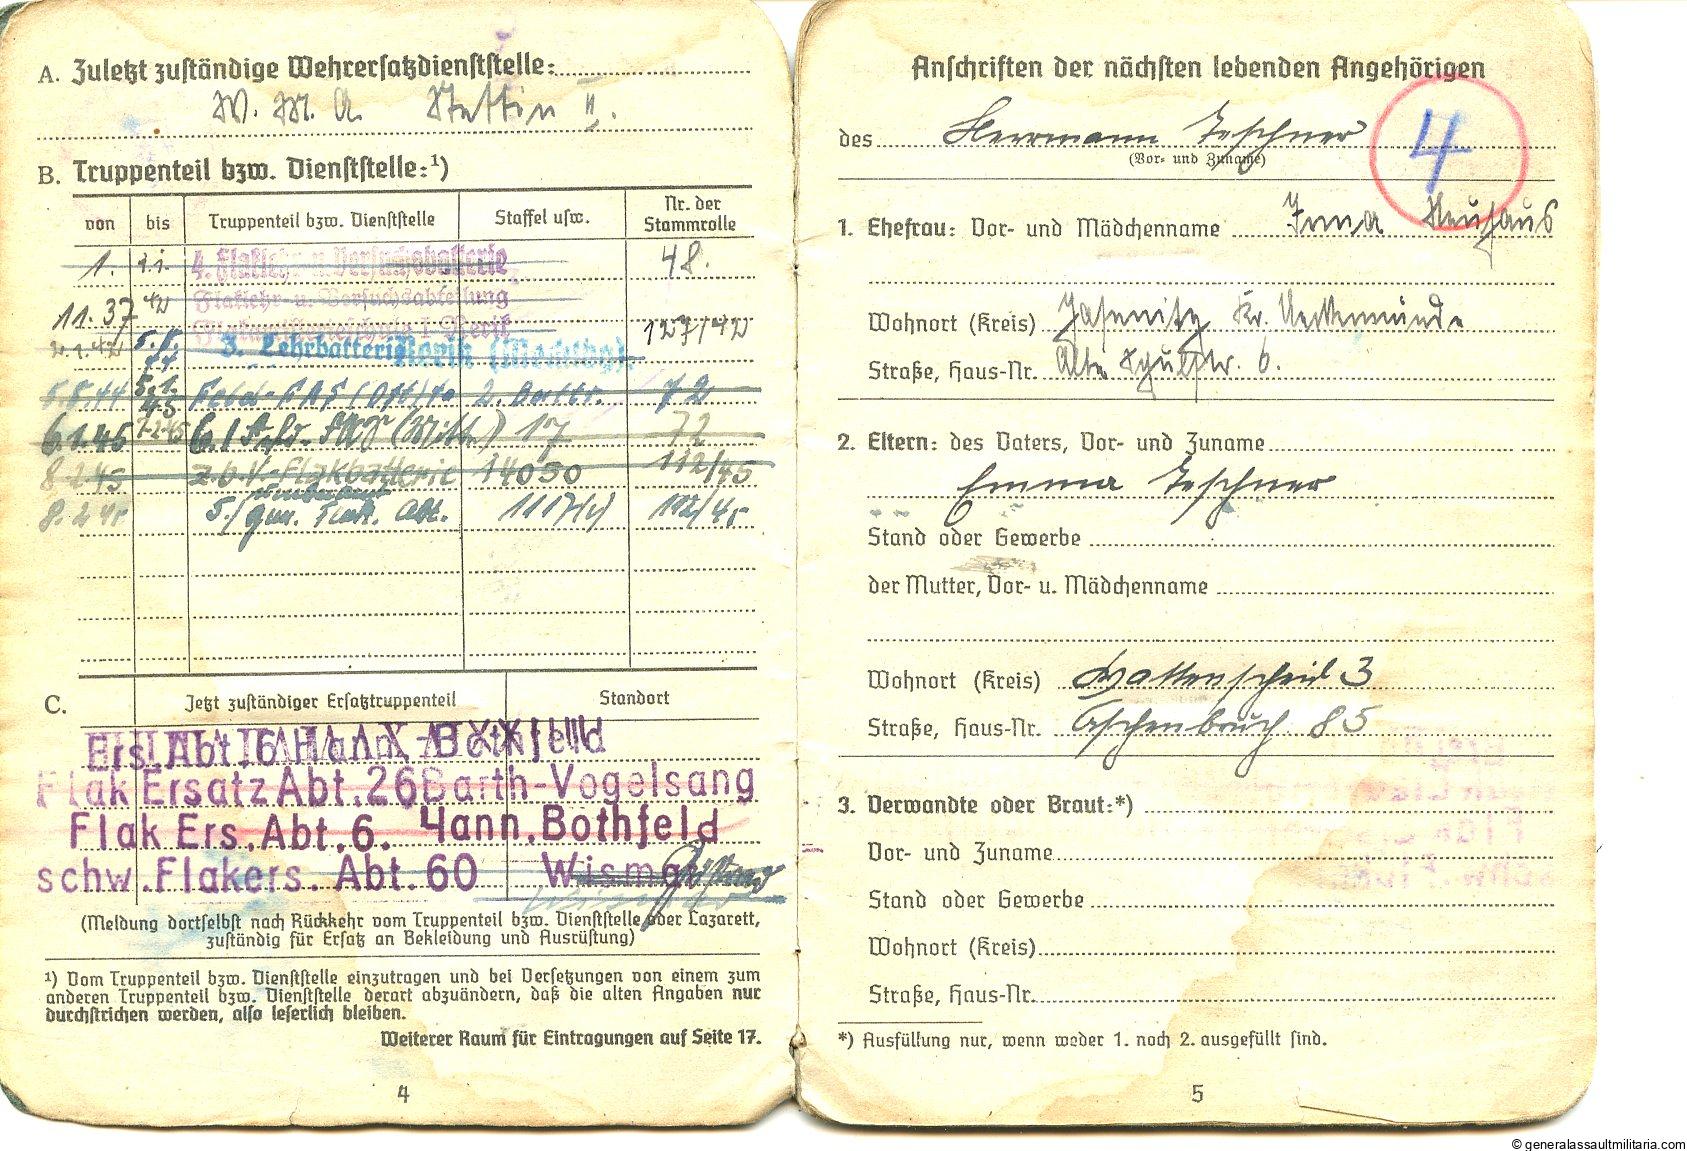 A. Zuletzt zuständige Wehrersatzdienststelle:
W. M. A. Stettin II.
B. Truppenteil bzw. Dienststelle:¹)
von bis Truppenteil bzw. Dienststelle Staffel usw. Nr. der Stammrolle
1. 4. Flaklehr- u. Versuchsbatterie 48.
11.37 42 Flaklehr- u. Versuchsabteilung
Rerik 127/42
3. Lehrbatterie Rerik (Mecklbg).
5.5.44 2. Battr. 72
6.1.45 17 72
8.2.45 z.b.V.-Flakbatterie 14050 112/45
8.2.45 5./ Abt. 1117(v) 112/45
C. Jetzt zuständiger Ersatztruppenteil Standort
Ers. Abt. 6 Hann.-Bothfeld
Flak Ersatz Abt. 26 Barth-Vogelsang
Flak Ers. Abt. 6. Hann. Bothfeld
schw. Flakers. Abt. 60 Wismar
(Meldung dortselbst nach Rückkehr vom Truppenteil bzw. Dienststelle oder Lazarett,
zuständig für Ersatz an Bekleidung und Ausrüstung)
¹) Vom Truppenteil bzw. Dienststelle einzutragen und bei Versetzungen von einem zum
anderen Truppenteil bzw. Dienststelle derart abzuändern, daß die alten Angaben nur
durchstrichen werden, also leserlich bleiben.
Weiterer Raum für Eintragungen auf Seite 17.
4
Anschriften der nächsten lebenden Angehörigen
4
des Herrmann Teschner
(Vor- und Zuname)
1. Ehefrau: Vor- und Mädchenname Irma Neuhaus
Wohnort (Kreis) Jasenitz Kr. Ueckermünde
Straße, Haus-Nr. Alte Schulstr. 6.
2. Eltern: des Vaters, Vor- und Zuname
Emma Teschner
Stand oder Gewerbe
der Mutter, Vor- u. Mädchenname
Wohnort (Kreis) Wattenscheid 3
Straße, Haus-Nr. Aschenbruch 85
3. Verwandte oder Braut:*)
Vor- und Zuname
Stand oder Gewerbe
Wohnort (Kreis)
Straße, Haus-Nr.
*) Ausfüllung nur, wenn weder 1. noch 2. ausgefüllt sind.
5
© generalassaultmilitaria.com